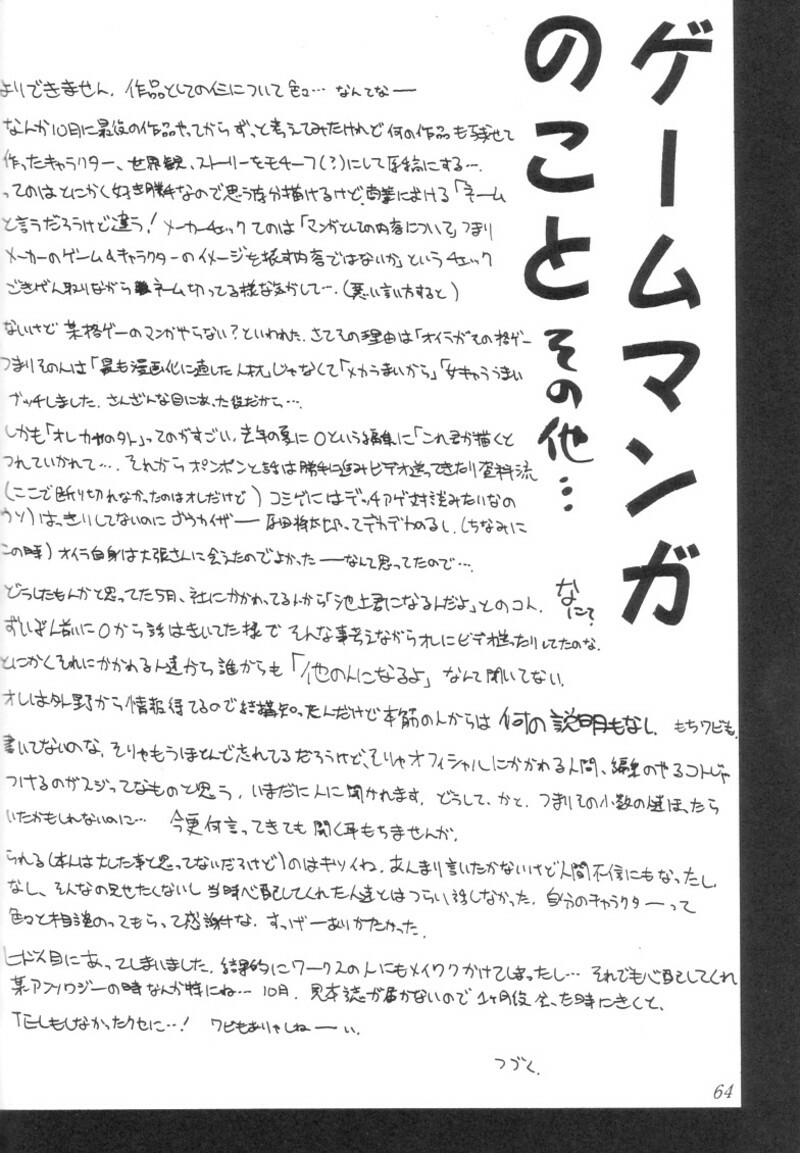 ゲームマンガ
のこと その他…
よりできません. 作品としての仕について色々… なんてなー
なんか10月に最後の作品やってからずっと考えてみたけれど何の作品も残せて
作ったキャラクター、世界観、ストーリーをモチーフ(?)にして原稿にする….
ってのはとにかく好き勝手なので思う存分描けるけど、商業における「ネーム
と言うだろうけど違う! メーカーチェックてのは「マンガとしての内容について」つまり
メーカーのゲーム&キャラクターのイメージを壊す内容ではないか」というチェック
ごきげん取りながらネーム切ってる様な気がして…. (悪い言い方すると)
ないけど某格ゲーのマンガやらない?といわれた. さてその理由は「オイラがその格ゲー
つまりその人は「最も漫画化に適した人材」じゃなくて「メカうまいから」「女キャラうまい
ブッチしました. さんざんな目にあった後だから….
しかも「オレカヤのタト」ってのがすごい. 去年の夏にOという編集に「これ君が描くと
つれていかれて…. それからポンポンと話は勝手に進みビデオ送ってきたり資料流
(ここで断り切れなかったのはオレだけど) コミゲにはデッチアゲ対談みたいなの
ウソ) はっきりしてないのにゴウカイザー 原田将太郎ってデカデカのるし. (ちなみに
この時) オイラ自身は大張さんに会えたのでよかったーなんて思ってたので….
どうしたもんかと思ってた5月、社にかかわってる人から「池上君になるんだよ」とのコト. なにて?
ずいぶん前にOから話はきいてた様で そんな事考えながらオレにビデオ送ったりしてたのな.
とにかくそれにかかわる人達から誰からも「他の人になるよ」なんて聞いてない.
オレは外野から情報得てるので結構知ったんだけど本筋の人からは 何の説明もなし. もちワビも.
書いてないのな. そりゃもうほとんど忘れてるだろうけど、そりゃオフィシャルにかかわる人間、編集のやるコトじゃ
つけるのがスジってなものと思う. いまだに人に聞かれます. どうして、かと. つまりその小数の僕ほったら
いたかもしれないのに… 今更何言ってきても聞く耳もちませんが.
られる(本人は大した事と思ってないだろけど)のはキツイね. あんまり言いたかないけど人間不信にもなったし.
なし、そんなの見せたくないし 当時心配してくれた人達とはつらい話しなかった. 自分のキャラクターって
色々と相談のってもらって感謝けな. すっげーありがたかった.
ヒドス目にあってしまいました. 結果的にワークスの人にもメイワクかけてしまったし… それでも心配してくれ
某アンソロジーの時なんか特にね… 10月. 見本誌が届かないので1ヶ月後会った時にきくと、
TELもしなかったクセに…! ワビもありゃしねーい.
つづく.
64